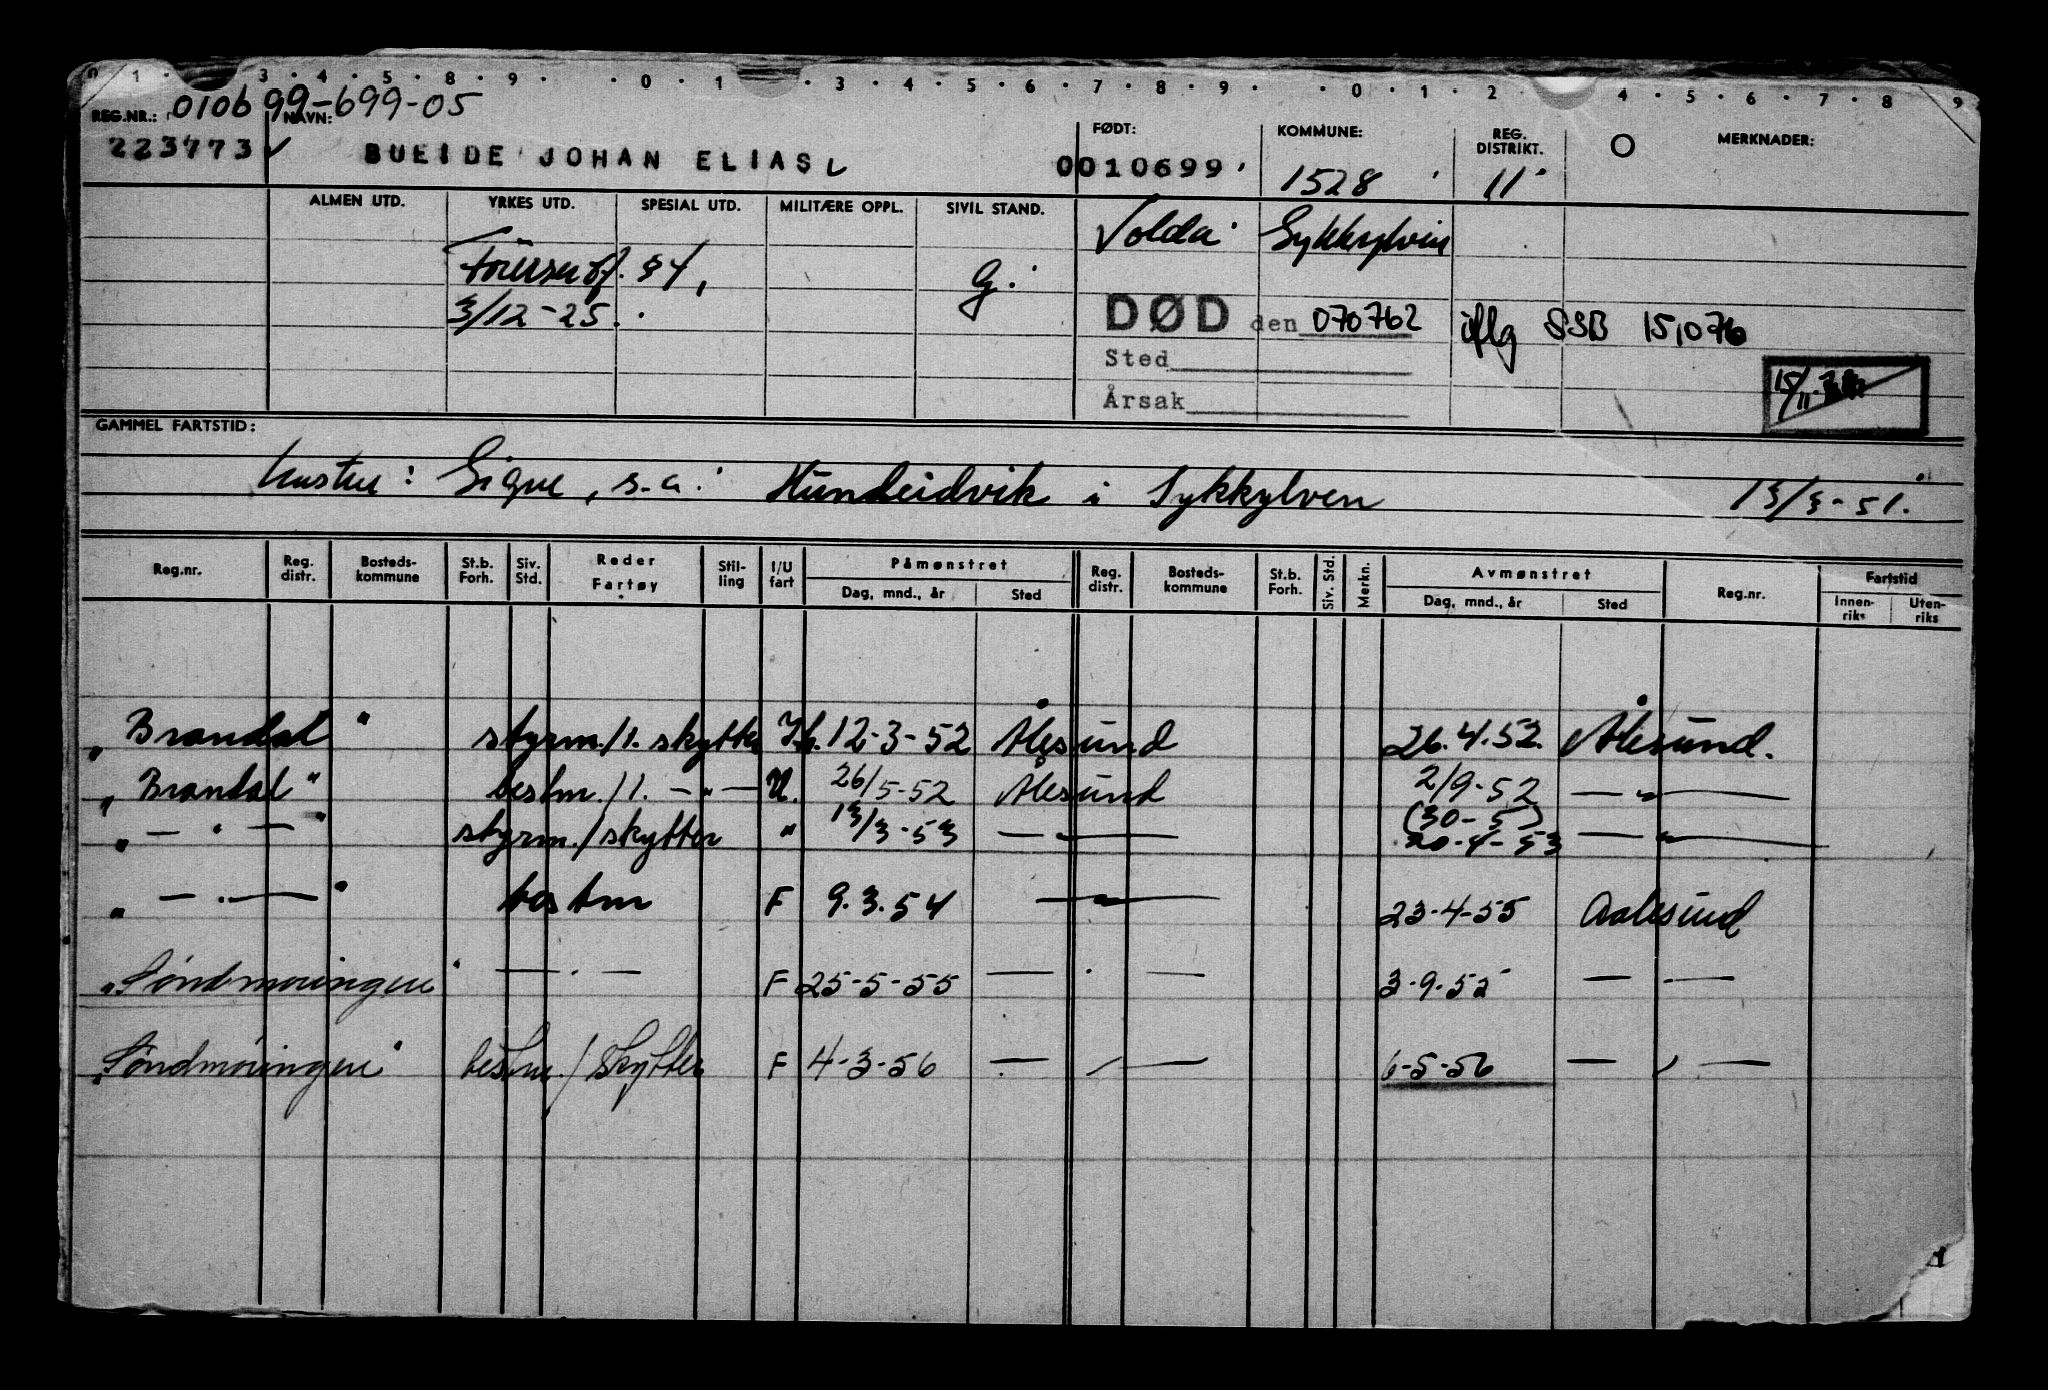 0 1 · 3 · 4 · 5 · 8 · 9 · · 0 · 1 · 3 · 4 · 5 · 6 · 7 · 8 · 9 · · 0 · 1 · 2 · 4 · 5 · 6 · 7 · 8 9
REG.NR.: 010699-699-05 NAVN: FØDT: KOMMUNE: REG. DISTRIKT. O MERKNADER:
223773 ✓ BUEIDE JOHAN ELIAS 0010699 1528 11
ALMEN UTD. YRKES UTD. SPESIAL UTD. MILITÆRE OPPL. SIVIL STAND. Volda Sykkylven
§ 4, G.
3/12-25. DØD den 070762 iflg SSB 151076
Sted
Årsak 15/11
GAMMEL FARTSTID:
Hustru: Signe, s.a. Hundeidvik i Sykkylven 13/3-51.
Reg.nr. Reg. distr. Bosteds-kommune St.b. Forh. Siv. Std. Reder Fartøy Stil-ling I/U fart Påmønstret Dag, mnd., år Sted Reg. distr. Bosteds-kommune St.b. Forh. Siv. Std. Merkn. Avmønstret Dag, mnd., år Sted Reg.nr. Fartstid Innen-riks Uten-riks
"Brandal" styrm./1. skytter 12-3-52 Ålesund 26.4.52. Ålesund.
"Brandal" bestm./1. — " — U. 26/5-52 Ålesund 2/9-52 — " —
(30-5)
" — " — " styrm./skytter " 13/3-53 — " — 20-4-53 — " —
" — " — " bestm F 9.3.54 — " — 23-4-55 Aalesund
"Søndmøringen" — " — F 25-5-55 — " — 3-9-55 — " —
"Søndmøringen" bestm./skytter F 4-3-56 — " — 6-5-56 — " —